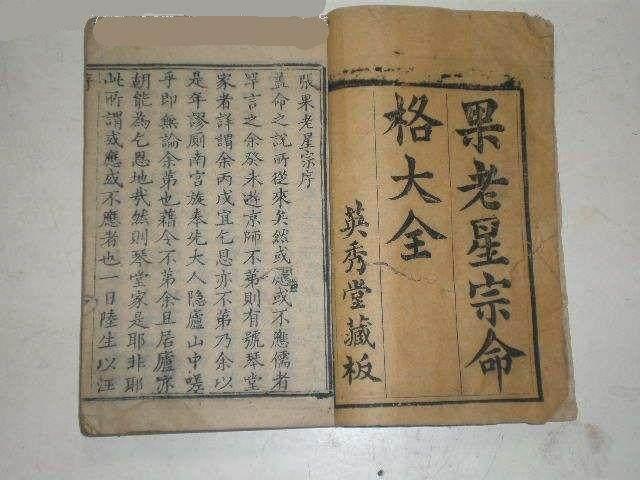 果老星宗命
格大全
英秀堂藏板
張果老星宗序
蓋命之說所從來矣然或應或不應儒者
罕言之余癸未遊京師不第則有號琴堂
家者詳謂余丙戌宜乞恩亦不第乃余以
是年謬厠南宮族奉先大人隐廬山中嗟
乎即無論余第也藉令不第余且居廬亦
朝能為乞恩地哉然則琴堂家是耶非耶
此所謂或應或不應者也一日陸生以汪